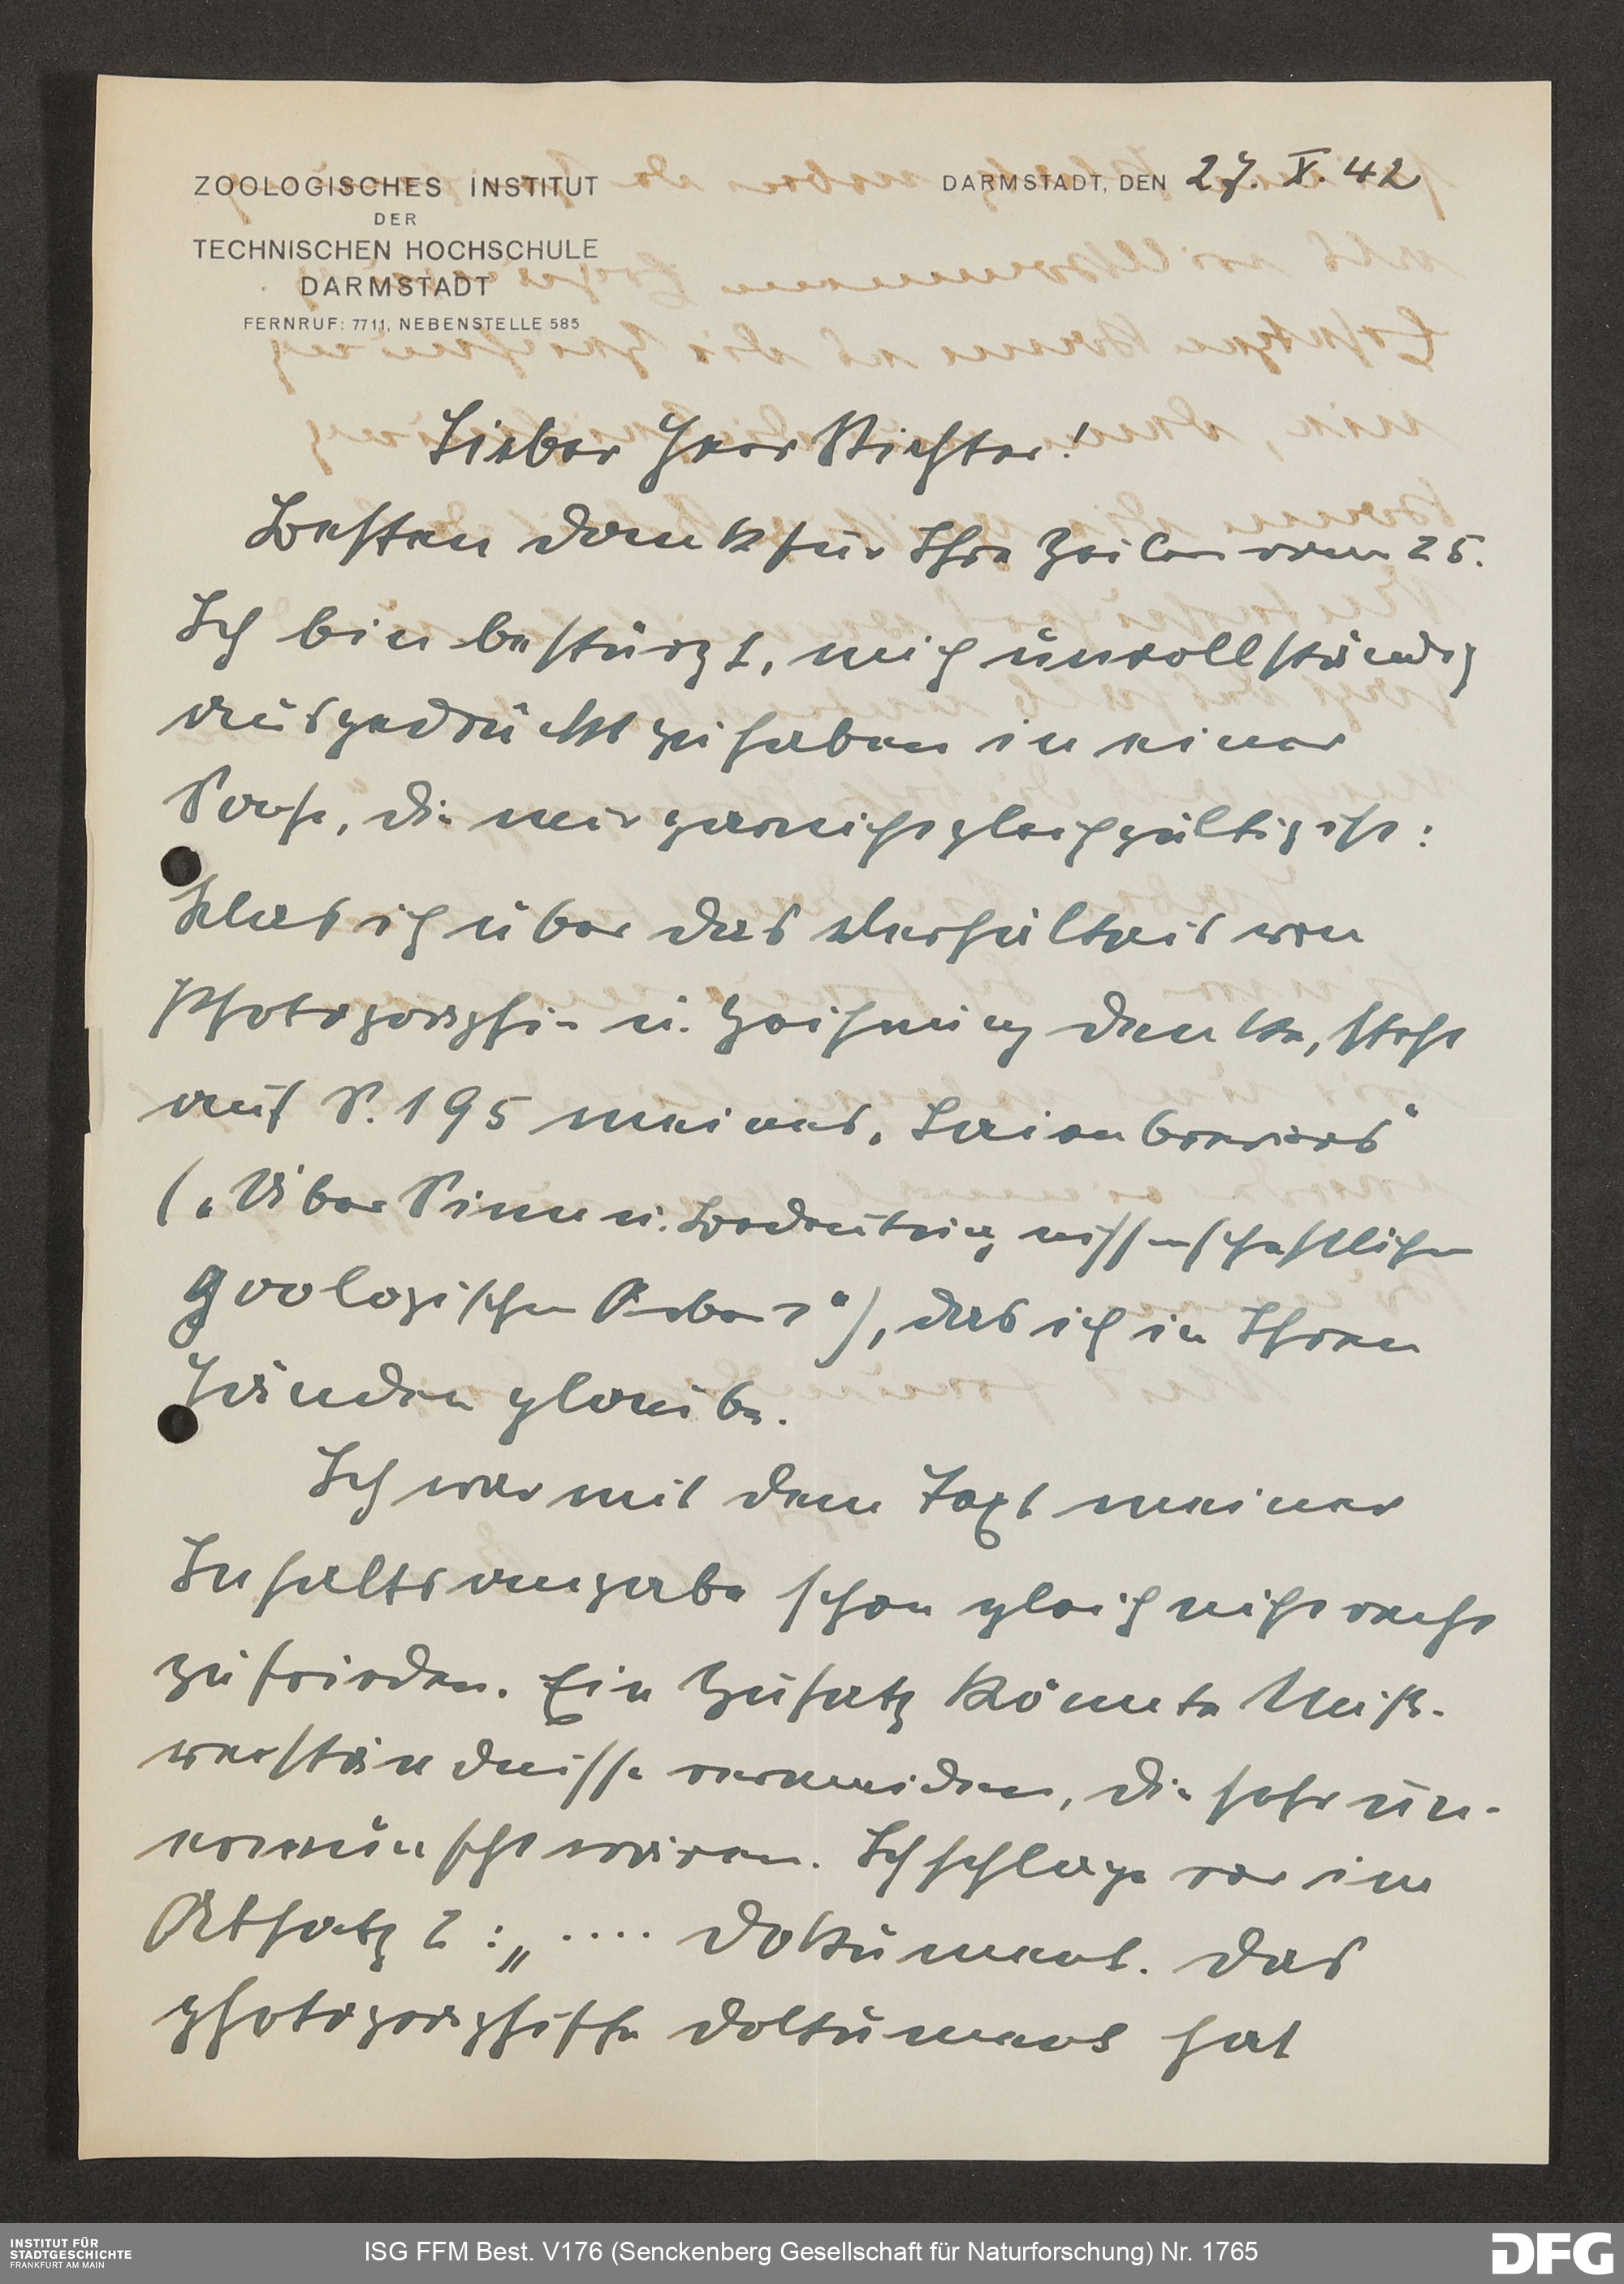 ZOOLOGISCHES INSTITUT
DER
TECHNISCHEN HOCHSCHULE
DARMSTADT
FERNRUF: 7711, NEBENSTELLE 585
DARMSTADT, DEN 27. X. 42
Lieber Herr Richter!
Besten Dank für Ihre Zeilen vom 25.
Ich bin bestürzt, mich unvollständig
ausgedrückt zu haben in einer
Sache, die mir garnicht gleichgültig ist:
Was ich über das Verhältnis von
Photographie u. Zeichnung denke, steht
auf S. 195 meines „Laienbreviers"
(„Über Sinn u. Bedeutung wissenschaftlicher
zoologischer Arbeit"), das ich in Ihren
Händen glaube.
Ich war mit dem Text meiner
Inhaltsangabe schon gleich nicht recht
zufrieden. Ein Zusatz könnte Miß-
verständnisse vermeiden, die sehr un-
erwünscht wären. Ich schlage vor im
Absatz 2: „.... Dokument. Das
photographische Dokument hat
INSTITUT FÜR
STADTGESCHICHTE
FRANKFURT AM MAIN
ISG FFM Best. V176 (Senckenberg Gesellschaft für Naturforschung) Nr. 1765
DFG